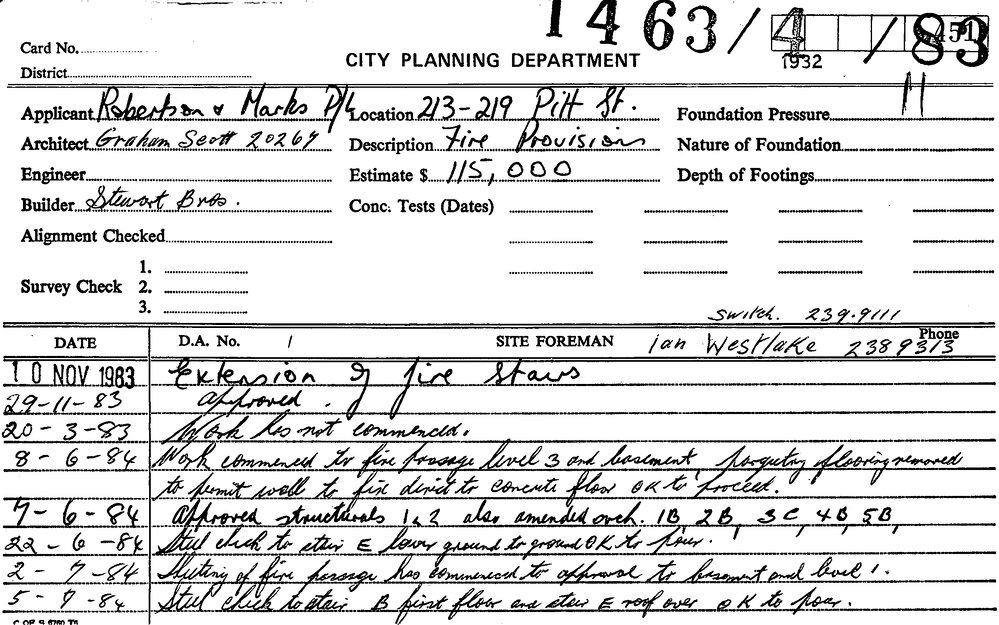 1463/4/83
451
1932
11
Card No.
CITY PLANNING DEPARTMENT
District
Applicant Robertson & Marks P/L Location 213-219 Pitt St. Foundation Pressure
Architect Graham Scott 20267 Description Fire Provisions Nature of Foundation
Engineer Estimate $ 115,000 Depth of Footings
Builder Stewart Bros. Conc. Tests (Dates)
Alignment Checked
1.
Survey Check 2.
3.
switch. 239.9111
DATE D.A. No. / SITE FOREMAN Ian Westlake Phone 2389313
10 NOV 1983 Extension of fire stairs
29-11-83 Approved.
20-3-83 Work has not commenced.
8-6-84 Work commenced to fire passage level 3 and basement, parquetry flooring removed
to permit wall to fix direct to concrete floor OK to proceed.
7-6-84 Approved structurals 1&2 also amended arch. 1B, 2B, 3C, 4B, 5B,
22-6-84 Steel check to stair E lower ground to ground OK to pour.
2-7-84 Sheeting of fire passage has commenced to approval to basement and level 1.
5-7-84 Steel check to stair B first floor and stair E roof over OK to pour.